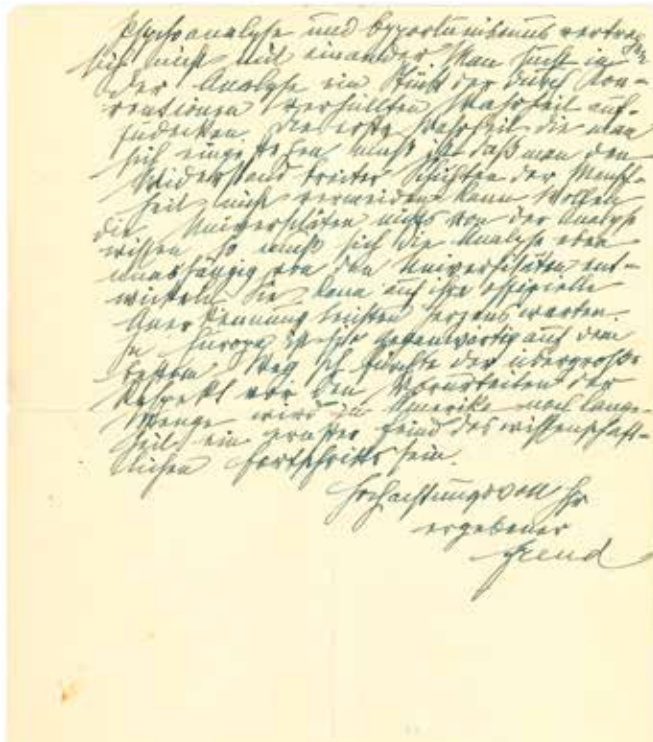 Psychoanalyse und Opportunismus vertragen
sich nicht mit einander Man sucht in
der Analyse ein Stück der durch Kon-
ventionen verhüllten Wahrheit auf-
zudecken Die erste Wahrheit die man
sich eingestehen muß ist daß man den
Widerstand breiter Schichten der Mensch-
heit nicht vermeiden kann Wollen
die Universitäten nichts von der Analyse
wissen so muß sich die Analyse eben
unabhängig von den Universitäten ent-
wickeln Sie kann auf ihre offizielle
Anerkennung leichten Herzens warten.
In Europa ist sie gegenwärtig auf dem
besten Weg Ich fürchte der übergroße
Respekt vor den Vorurteilen der
Menge wird in Amerika noch lange
Zeit ein ernster Feind des wissenschaft-
lichen Fortschritts sein.
Hochachtungsvoll Ihr
ergebener
Freud